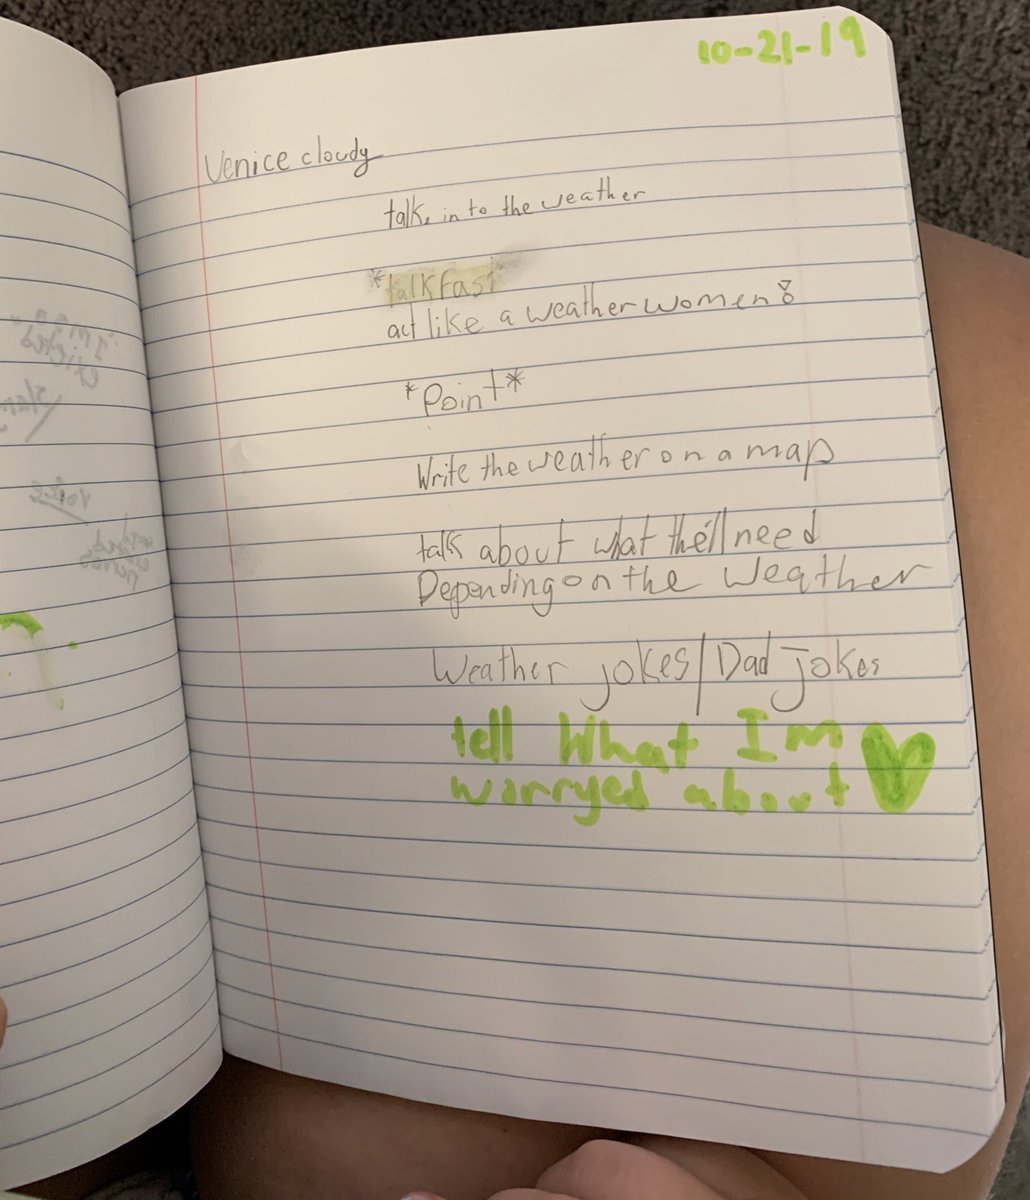 10-21-19
Venice cloudy
talk, in to the weather
*talk fast*
act like a weather women
*Point*
Write the weather on a map
talk about what the'll need
Depending on the weather
Weather jokes/Dad jokes
tell What Im
worryed about